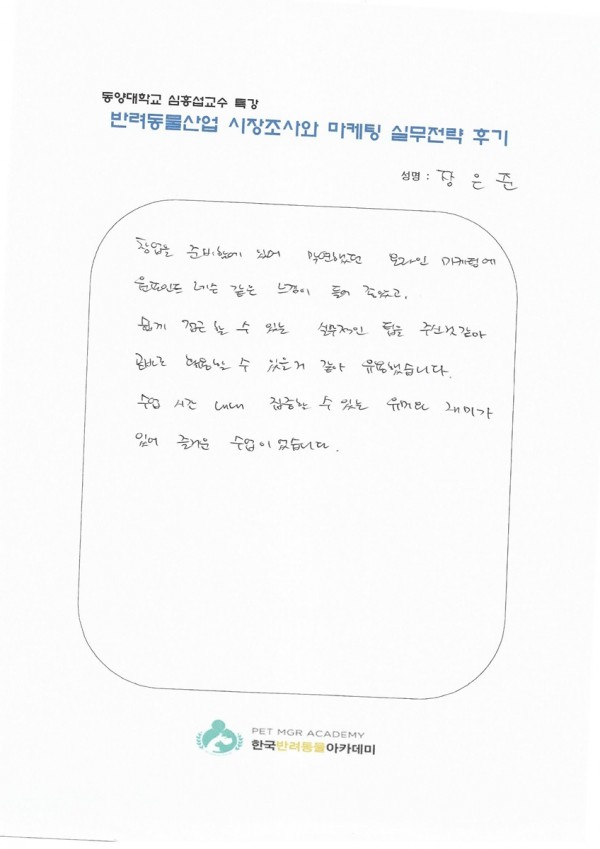 동양대학교 심흥섭교수 특강
반려동물산업 시장조사와 마케팅 실무전략 후기
성명 : 장 은 준
창업을 준비함에 있어 막연했던 온라인 마케팅에
원포인트 레슨 같은 느낌이 들어 좋았고,
쉽게 접근 할 수 있는 실무적인 팁을 주신것같아
곧바로 활용할 수 있을거 같아 유용했습니다.
수업 시간 내내 집중할 수 있는 유머와 재미가
있어 즐거운 수업이었습니다.
PET MGR ACADEMY
한국반려동물아카데미